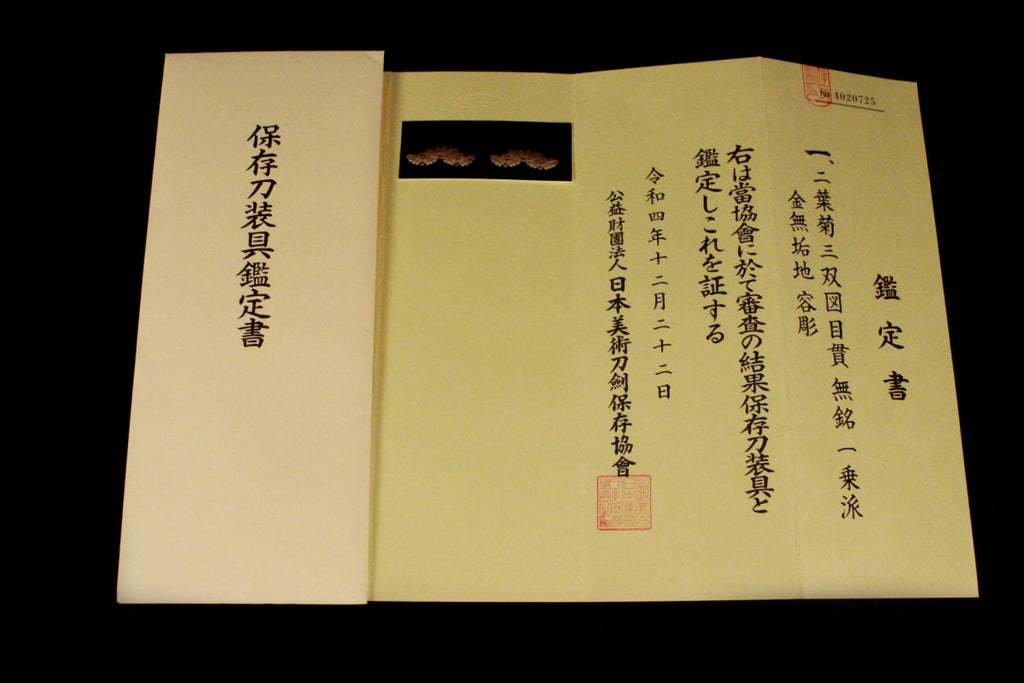 保存刀装具鑑定書
№ 4020725
鑑定書
一、二葉菊三双図目貫 無銘 一乗派
金無垢地 容彫
右は當協會に於て審査の結果保存刀装具と
鑑定しこれを証する
令和四年十二月二十二日
公益財團法人日本美術刀劍保存協會